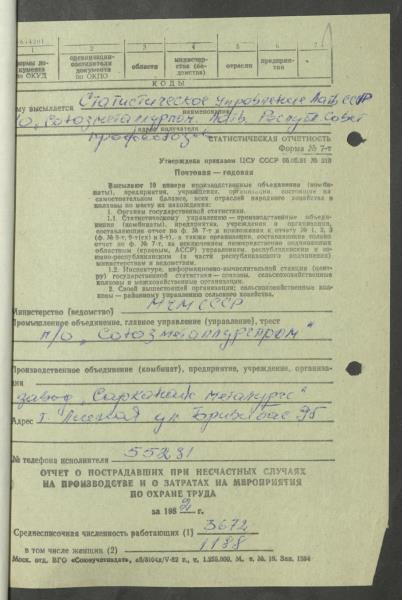 1 2 3 4 5 6 7
формы документа по ОКУД
организации-составителя документа по ОКПО
области
министерства (ведомства)
отрасли
предприятия
КОДЫ
Кому высылается Статистическое управление Латв ССР
наименование
п/о „Союзметаллургпром" Латв. Республ Совет
адрес получателя
профсоюзов
СТАТИСТИЧЕСКАЯ ОТЧЕТНОСТЬ
Форма № 7-т
Утверждена приказом ЦСУ СССР
Почтовая — годовая
Высылают 10 января производственные объединения (комбинаты), предприятия, учреждения, организации, состоящие на самостоятельном балансе, всех отраслей народного хозяйства и колхозы по месту их нахождения:
1. Органам государственной статистики.
1.1. Статистическому управлению — производственные объединения (комбинаты), предприятия, учреждения и организации, составляющие отчет по ф. № 7-т и приложения к отчету № 1, 2, 3
а также организации, составляющие только отчет по ф. № 7-т, за исключением непосредственно подчиненных областным (краевым, АССР) управлениям, республиканским и союзно-республиканским (в части республиканского подчинения) министерствам и ведомствам.
1.2. Инспектуре, информационно-вычислительной станции (центру) государственной статистики — совхозы, сельскохозяйственные колхозы и межхозяйственные организации.
2. Своей вышестоящей организации; сельскохозяйственные колхозы — районному управлению сельского хозяйства.
Министерство (ведомство) МЧМ СССР
Промышленное объединение, главное управление (управление), трест
п/о „Союзметаллургпром"
Производственное объединение (комбинат), предприятие, учреждение, организация
завод „Сарканайс металургс"
Адрес г. Лиепая ул Бривибас 95
№ телефона исполнителя 55231
ОТЧЕТ О ПОСТРАДАВШИХ ПРИ НЕСЧАСТНЫХ СЛУЧАЯХ
НА ПРОИЗВОДСТВЕ И О ЗАТРАТАХ НА МЕРОПРИЯТИЯ
ПО ОХРАНЕ ТРУДА
за 1982 г.
Среднесписочная численность работающих (1) 3672
в том числе женщин (2) 1188
Моск. отд. ВГО «Союзучетиздат»